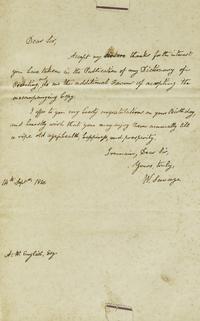 Dear Sir,
Accept my sincere thanks for the interest
you have taken in the Publication of my Dictionary of
Printing, do me the additional favour of accepting the
accompanying Copy.
I offer to you my hearty congratulations on your Birthday
and heartily wish that you may enjoy them annually till
a ripe old age, health, happiness, and prosperity.
I remain, Dear Sir,
Yours, truly,
W. Savage
14th Septr. 1841
A. W. English, Esq.